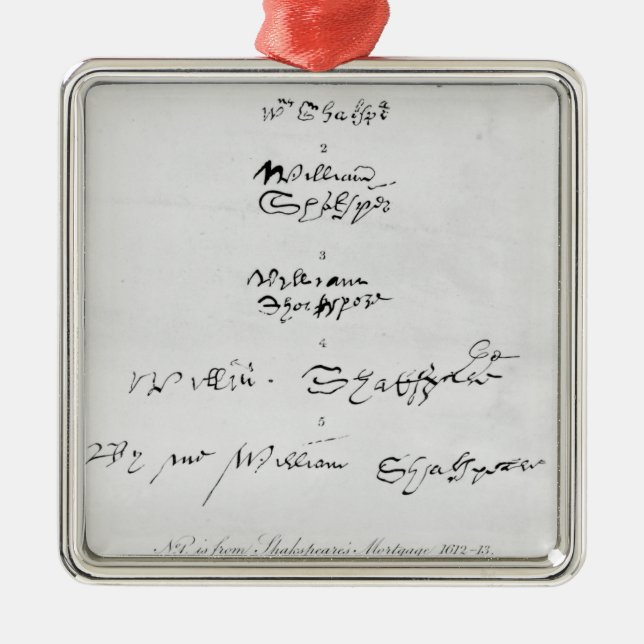 Wm Shakspe
2
William
Shakspere
3
William
Shakspere
4
Willm Shakspere
5
By me William Shakspeare
No 1. is from Shakspeare's Mortgage 1612-13.